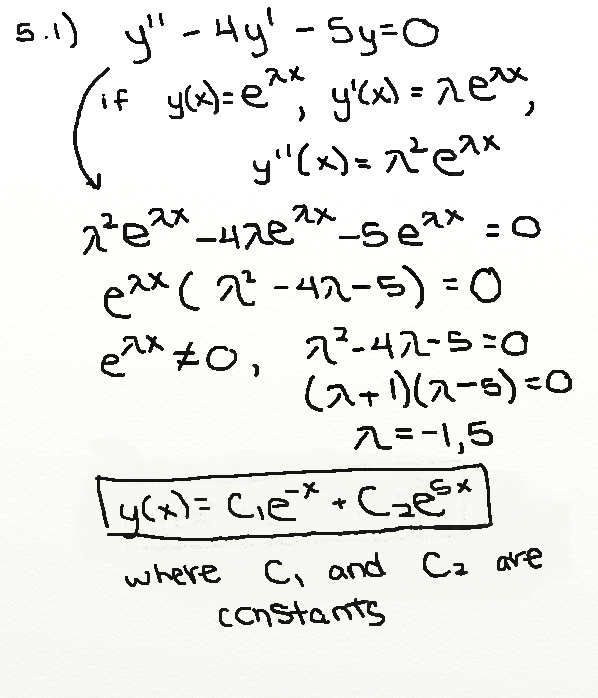 5.1) y'' - 4y' - 5y = 0
if y(x) = e^λx, y'(x) = λe^λx,
y''(x) = λ²e^λx
λ²e^λx - 4λe^λx - 5e^λx = 0
e^λx (λ² - 4λ - 5) = 0
e^λx ≠ 0, λ² - 4λ - 5 = 0
(λ + 1)(λ - 5) = 0
λ = -1, 5
y(x) = C₁e^-x + C₂e^5x
where C₁ and C₂ are
constants